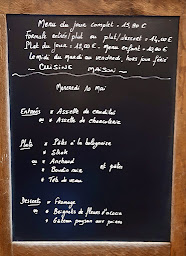 Menu du jour complet : 15,00 €
Formule entrée/plat ou plat/dessert : 14,00 €
Plat du jour : 12,00 €. Menu enfant : 10,00 €
Le midi du mardi au vendredi, hors jour férié
~ CUISINE MAISON ~
Mercredi 10 Mai
Entrées * Assiette de crudités
ou * Assiette de charcuterie
Plats * Pâtes à la bolognaise
* Steak
ou * Anchaud et pâtes
* Boudin noir
* Tête de veau
Desserts * Fromage
ou * Beignets de fleurs d'acacia
* Gâteau paysan aux poires